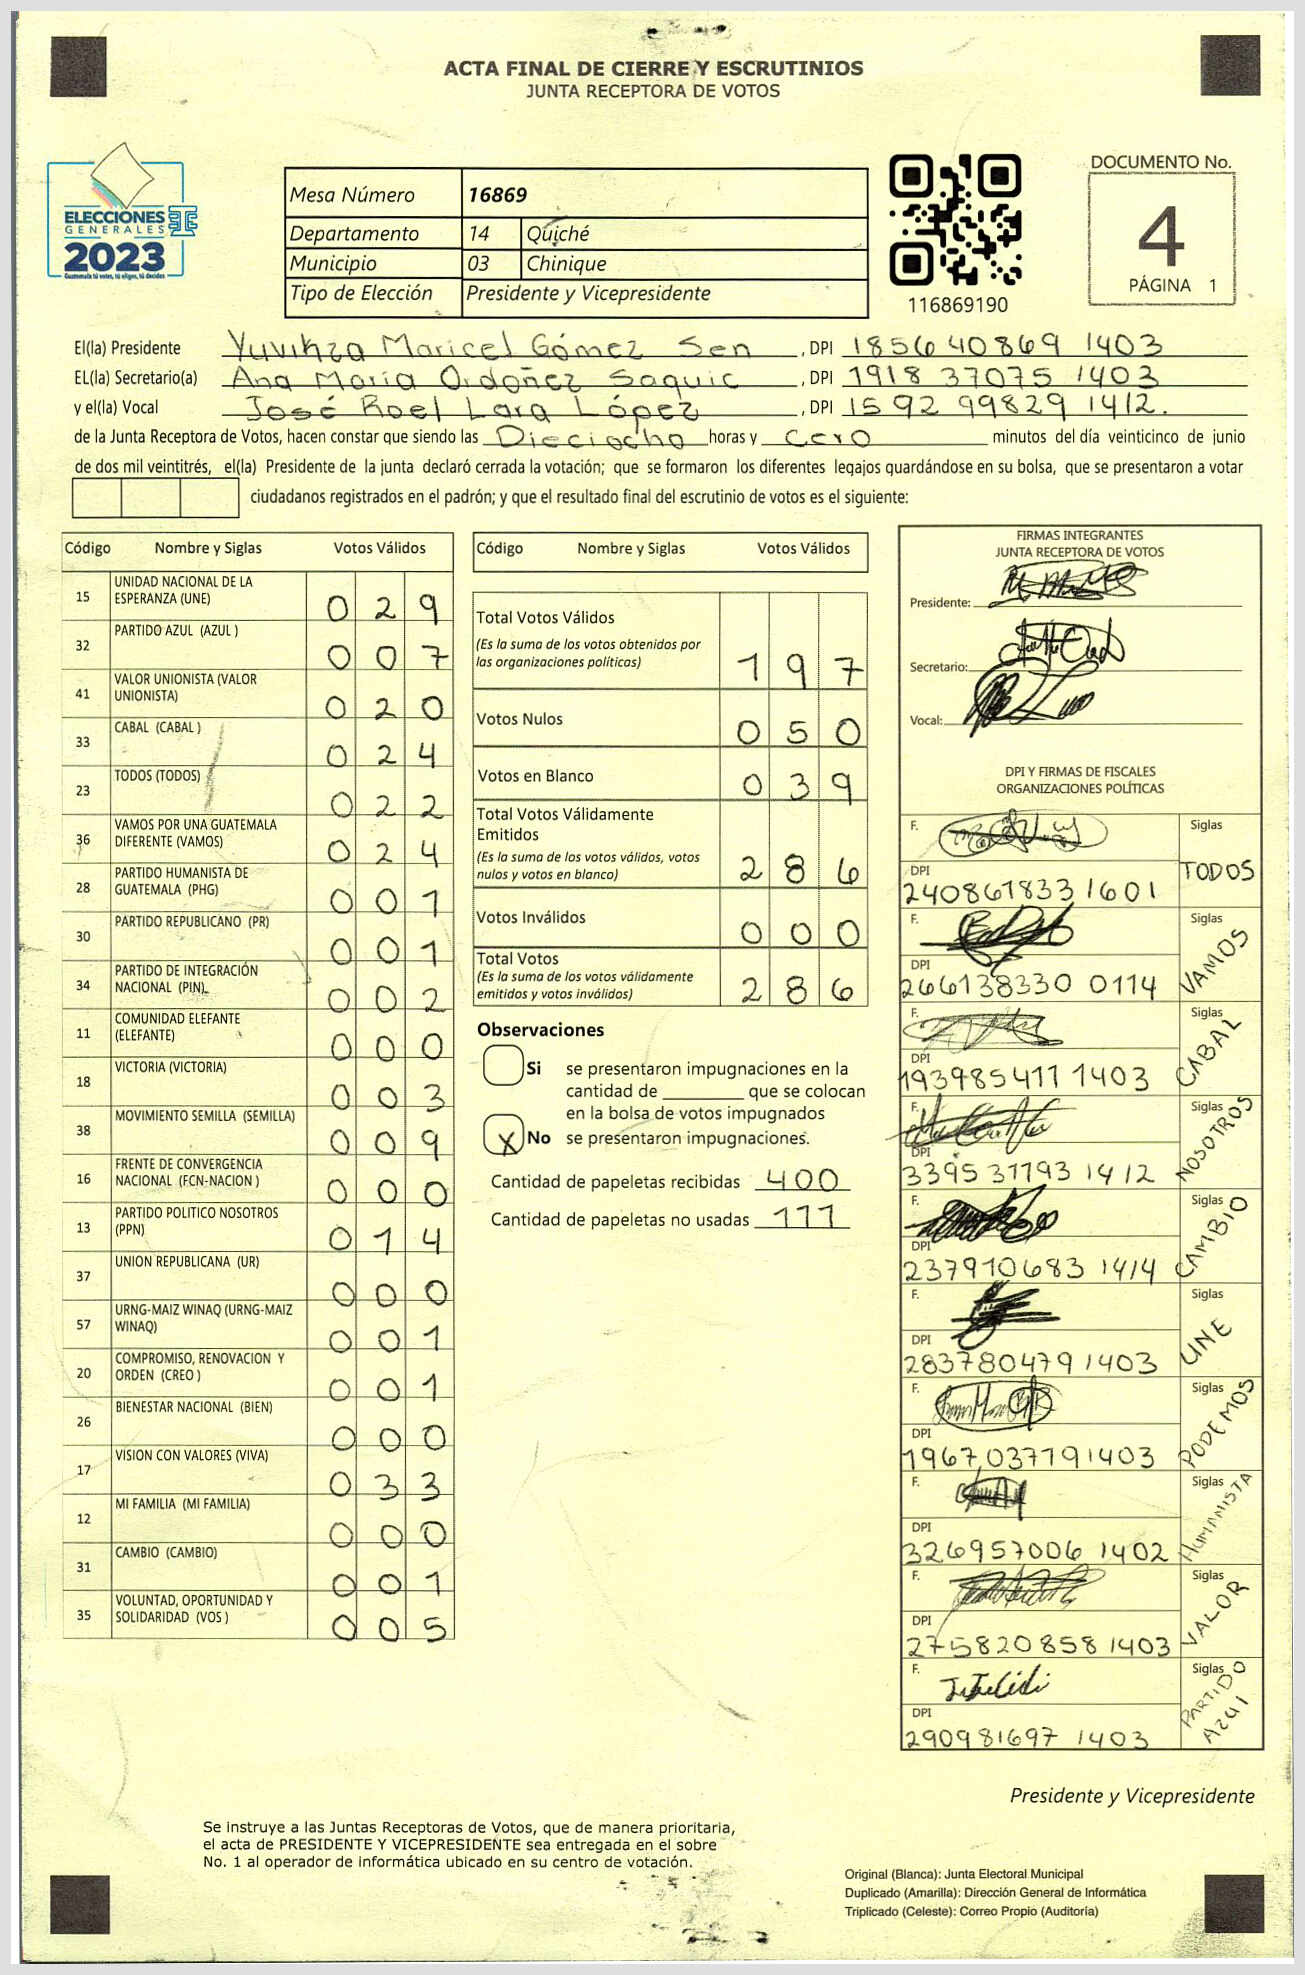 ACTA FINAL DE CIERRE Y ESCRUTINIOS
JUNTA RECEPTORA DE VOTOS
ELECCIONES
GENERALES
2023
Guatemala tú votas, tú eliges, tú decides
Mesa Número 16869
Departamento 14 Quiché
Municipio 03 Chinique
Tipo de Elección Presidente y Vicepresidente
116869190
DOCUMENTO No.
4
PÁGINA 1
El(la) Presidente Yuvihza Maricel Gómez Sen , DPI 185640869 1403
EL(la) Secretario(a) Ana María Ordoñez Saquic , DPI 1918 37075 1403
y el(la) Vocal José Roel Lara López , DPI 1592 99829 1412.
de la Junta Receptora de Votos, hacen constar que siendo las Dieciocho horas y cero minutos del día veinticinco de junio
de dos mil veintitrés, el(la) Presidente de la junta declaró cerrada la votación; que se formaron los diferentes legajos guardándose en su bolsa, que se presentaron a votar
ciudadanos registrados en el padrón; y que el resultado final del escrutinio de votos es el siguiente:
Código Nombre y Siglas Votos Válidos
15 UNIDAD NACIONAL DE LA ESPERANZA (UNE) 029
32 PARTIDO AZUL (AZUL ) 007
41 VALOR UNIONISTA (VALOR UNIONISTA) 020
33 CABAL (CABAL ) 024
23 TODOS (TODOS) 022
36 VAMOS POR UNA GUATEMALA DIFERENTE (VAMOS) 024
28 PARTIDO HUMANISTA DE GUATEMALA (PHG) 001
30 PARTIDO REPUBLICANO (PR) 001
34 PARTIDO DE INTEGRACIÓN NACIONAL (PIN) 002
11 COMUNIDAD ELEFANTE (ELEFANTE) 000
18 VICTORIA (VICTORIA) 003
38 MOVIMIENTO SEMILLA (SEMILLA) 009
16 FRENTE DE CONVERGENCIA NACIONAL (FCN-NACION ) 000
13 PARTIDO POLITICO NOSOTROS (PPN) 014
37 UNION REPUBLICANA (UR) 000
57 URNG-MAIZ WINAQ (URNG-MAIZ WINAQ) 001
20 COMPROMISO, RENOVACION Y ORDEN (CREO ) 001
26 BIENESTAR NACIONAL (BIEN) 000
17 VISION CON VALORES (VIVA) 033
12 MI FAMILIA (MI FAMILIA) 000
31 CAMBIO (CAMBIO) 001
35 VOLUNTAD, OPORTUNIDAD Y SOLIDARIDAD (VOS ) 005
Código Nombre y Siglas Votos Válidos
Total Votos Válidos
(Es la suma de los votos obtenidos por
las organizaciones políticas) 197
Votos Nulos 050
Votos en Blanco 039
Total Votos Válidamente
Emitidos
(Es la suma de los votos válidos, votos
nulos y votos en blanco) 286
Votos Inválidos 000
Total Votos
(Es la suma de los votos válidamente
emitidos y votos inválidos) 286
Observaciones
Si se presentaron impugnaciones en la
cantidad de ________ que se colocan
en la bolsa de votos impugnados
X No se presentaron impugnaciones.
Cantidad de papeletas recibidas 400
Cantidad de papeletas no usadas 111
FIRMAS INTEGRANTES
JUNTA RECEPTORA DE VOTOS
Presidente:
Secretario:
Vocal:
DPI Y FIRMAS DE FISCALES
ORGANIZACIONES POLÍTICAS
F. Siglas
DPI TODOS
240861833 1601
F. Siglas
DPI VAMOS
266138330 0114
F. Siglas
DPI CABAL
193985411 1403
F. Siglas
DPI NOSOTROS
3395 31793 1412
F. Siglas
DPI CAMBIO
237910683 1414
F. Siglas
DPI UNE
283780479 1403
F. Siglas
DPI PODEMOS
1967,03779 1403
F. Siglas
DPI HUMANISTA
326957006 1402
F. Siglas
DPI VALOR
275820858 1403
F. Siglas
DPI PARTIDO AZUL
290981697 1403
Presidente y Vicepresidente
Se instruye a las Juntas Receptoras de Votos, que de manera prioritaria,
el acta de PRESIDENTE Y VICEPRESIDENTE sea entregada en el sobre
No. 1 al operador de informática ubicado en su centro de votación.
Original (Blanca): Junta Electoral Municipal
Duplicado (Amarilla): Dirección General de Informática
Triplicado (Celeste): Correo Propio (Auditoría)